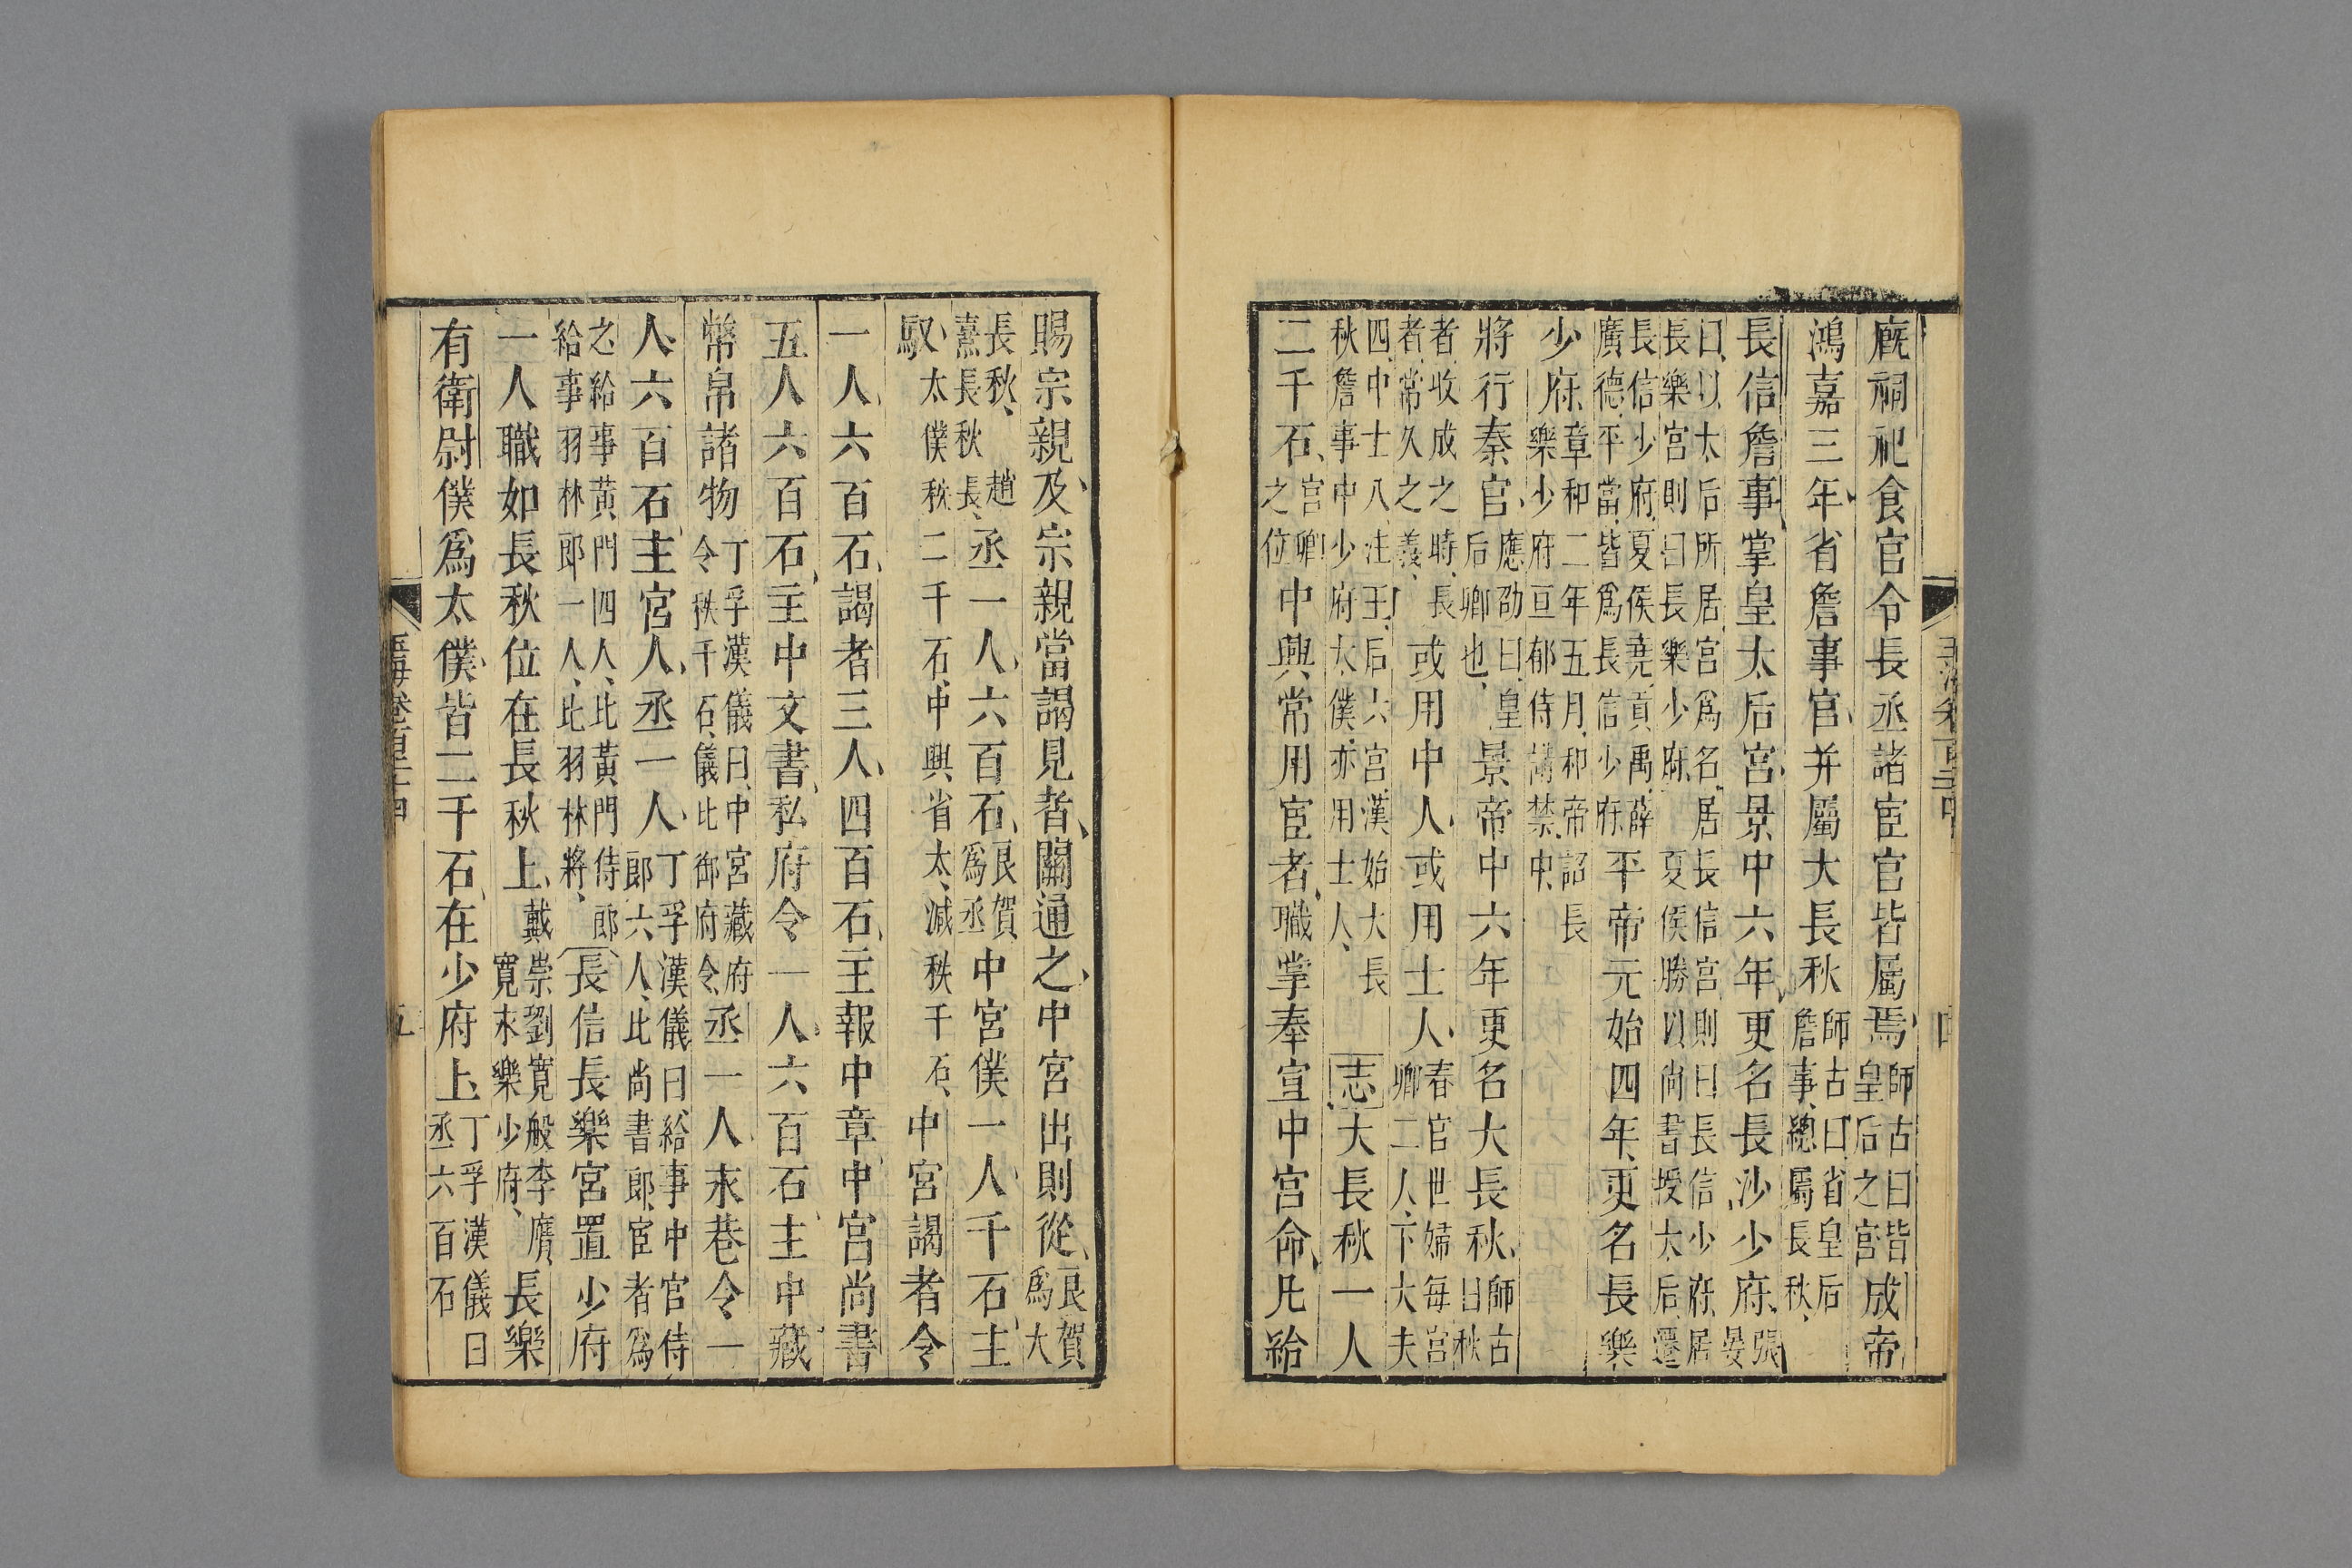 廐祠祀食官令長丞諸宦官皆屬焉師古曰皆皇后之官成帝
鴻嘉三年省詹事官并屬大長秋師古曰省皇后詹事總屬長秋
長信詹事掌皇太后宮景中六年更名長沙少府張晏
曰以太后所居宮爲名居長信宮則曰長信少府居長樂宮則曰長樂少府夏侯勝以尚書授太后遷
長信少府夏侯堯貢禹薛廣德平當皆爲長信少府平帝元始四年更名長樂
少府章和二年五月和帝詔長樂少府亘郁侍講禁中
將行秦官應劭曰皇后卿也景帝中六年更名大長秋師古曰秋
者收成之時長者常久之義或用中人或用士人春官世婦每宮卿二人下大夫
四中士八注王后六宮漢始大長秋詹事中少府太僕亦用士人志大長秋一人
二千石宫卿之位中興常用宦者職掌奉宣中宮命凡給
四
賜宗親及宗親當謁見者關通之中宮出則從良賀爲大
長秋趙熹長秋長丞一人六百石良賀爲丞中宮僕一人千石主
馭太僕秩二千石中興省太減秩千石中宮謁者令
一人六百石謁者三人四百石主報中章中宮尚書
五人六百石主中文書私府令一人六百石主中藏
幣帛諸物丁孚漢儀曰中宮藏府令秩千石儀比御府令丞一人永巷令一
人六百石主宮人丞一人丁孚漢儀曰給事中官侍郎六人比尚書郎宦者爲
之給事黃門四人比黃門侍郎給事羽林郎一人比羽林將長信長樂宮置少府
一人職如長秋位在長秋上戴崇劉寬般李膺寬末樂少府長樂
有衛尉僕爲太僕皆二千石在少府上丁孚漢儀曰丞六百石
玉海卷一百二十四
五